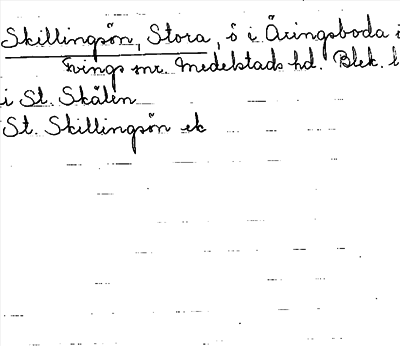 Skillingsön, Stora, ö i Äringsboda i
Tvings snr. Medelstads hd. Blek. l
i St. Skälen
St. Skillingsön ek